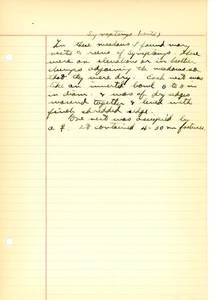 Synaptomys (cont.)
In these meadows I found many
nests & runs of Synaptomys. These
were on elevations or in
clumps adjoining the meadows so
that they were dry. Each nest was
like an inverted bowl 6 to 8 in
in diam. & was of dry sedges
together & lined with
finely shredded sedge.
One nest was occupied by
a ♀. It contained 4-30 mm foetuses.